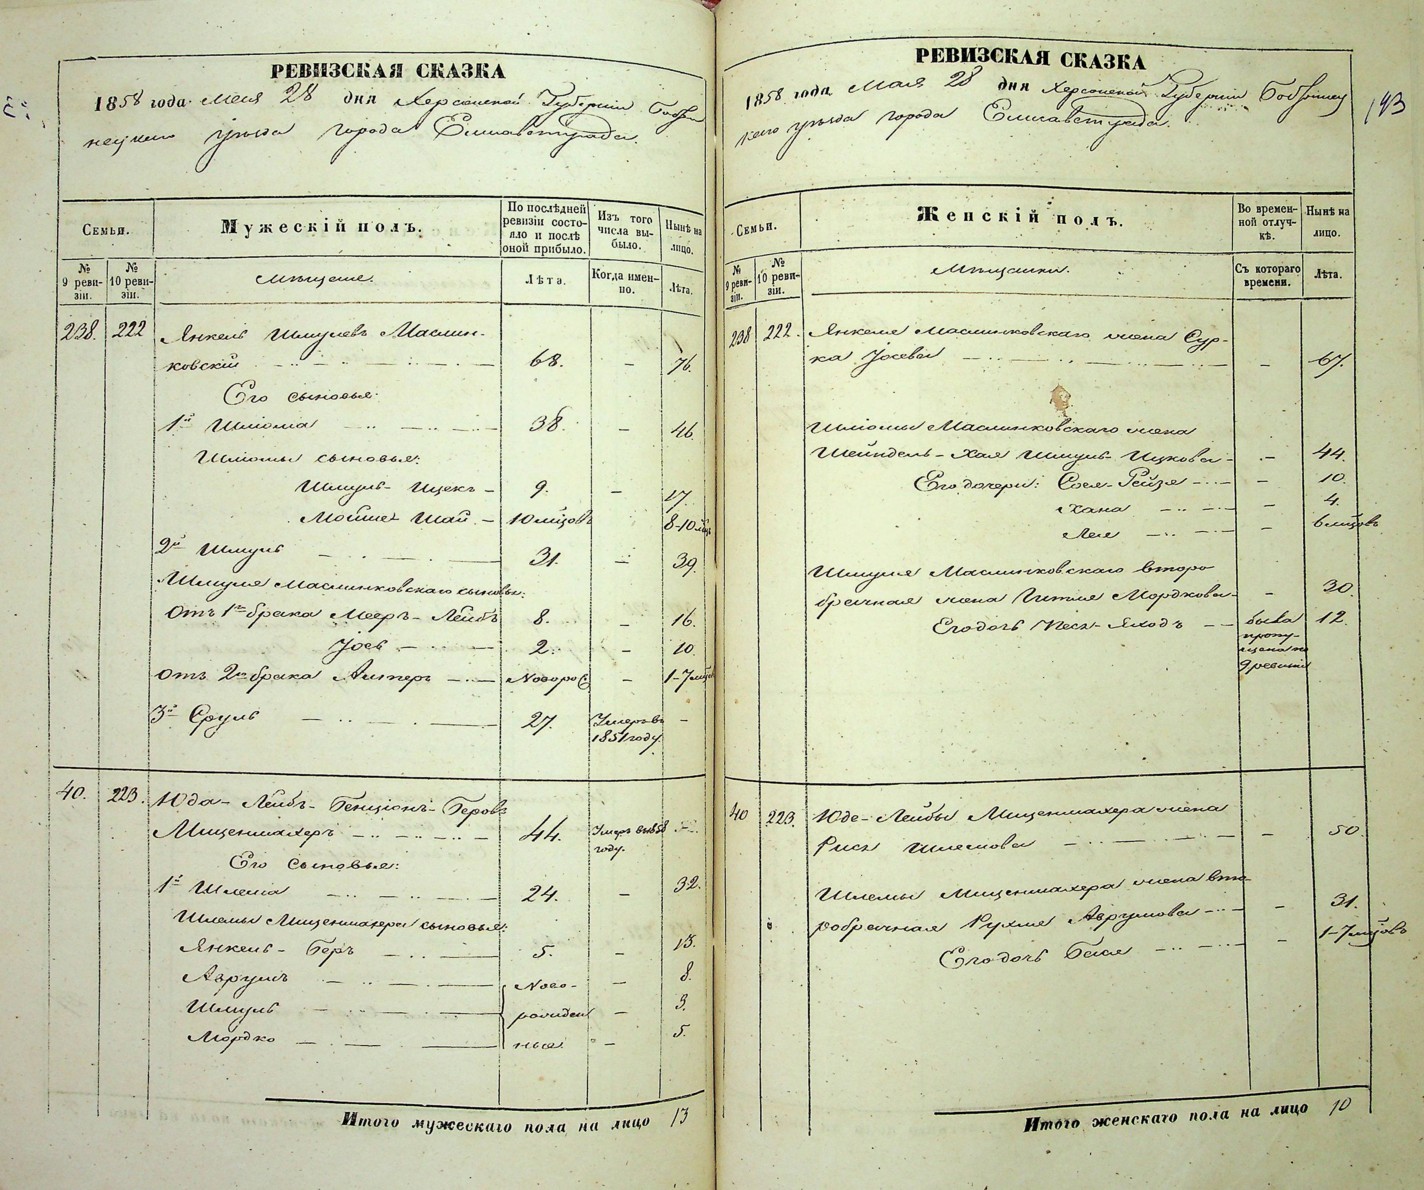 РЕВИЗСКАЯ СКАЗКА
1858 года. Мая 28 дня Херсонской Губернии Бобри
нецкаго уѣзда города Елисаветграда.
Семьи.
Мужескій полъ.
По послѣдней ревизіи состо-
яло и послѣ оной прибыло.
Изъ того числа вы-
было.
Нынѣ на лицо.
№ 9 реви-
зіи.
№ 10 реви-
зіи.
Мѣщане.
Лѣта.
Когда имен-
но.
Лѣта.
238. 222 Янкель Шмулевъ Маслин-
ковскій 68. – 76.
Его сыновья:
1й Шлiома 38. – 46.
Шлiомы сыновья:
Шмуль-Ицекъ 9. – 17.
Мойше Шая 10 мѣцовъ 8-10 мѣц
2й Шмуль 31. – 39.
Шмуля Маслинковскаго сыновья:
отъ 1го брака Мееръ-Лейбъ 8. – 16.
Іось 2. – 10.
отъ 2го брака Алтеръ Новорос – 1-7 мѣц
3й Сруль 27. Умеръ въ –
1851 году.
40. 223. Юда-Лейбъ-Бенціонъ-Беровъ
Мищенмахеръ 44. Умеръ въ 1858 –
году.
Его сыновья:
1й Шлема 24. – 32.
Шлемы Мищенмахера сыновья:
Янкель-Беръ 5. – 13.
Аврумъ Ново- – 8.
Шмуль рожден – 3.
Мордко ные – 5.
Итого мужескаго пола на лицо 13
РЕВИЗСКАЯ СКАЗКА
1858 года Мая 28 дня Херсонской Губерніи Бобринец
каго уѣзда города Елисаветграда.
193
Семьи.
Женскій полъ.
Во времен-
ной отлуч-
кѣ.
Нынѣ на лицо.
№ 9 реви-
зіи.
№ 10 реви-
зіи.
Мѣщанки.
Съ котораго времени.
Лѣта.
238 222. Янкеля Маслинковскаго жена Сур-
ка Іосева – 67.
Шлiомы Маслинковскаго жена
Шейндель-Хая Шмуль-Ицкова – 44.
Его дочери: Сося-Рейзя – 10.
Хана – 4.
Лея – 6 мѣцовъ
Шмуля Маслинковскаго второ
брачная жена Гитля Мордкова – 30.
Его дочь Песя-Яходъ была 12.
пропу-
щена по
9 ревизіи
40 223. Юде-Лейбы Мищенмахера жена
Рися Шлемова – 50.
Шлемы Мищенмахера жена вто-
робрачная Рухля Аврумова – 31.
Его дочь Бася – 1-7 мѣцовъ
Итого женскаго пола на лицо 10